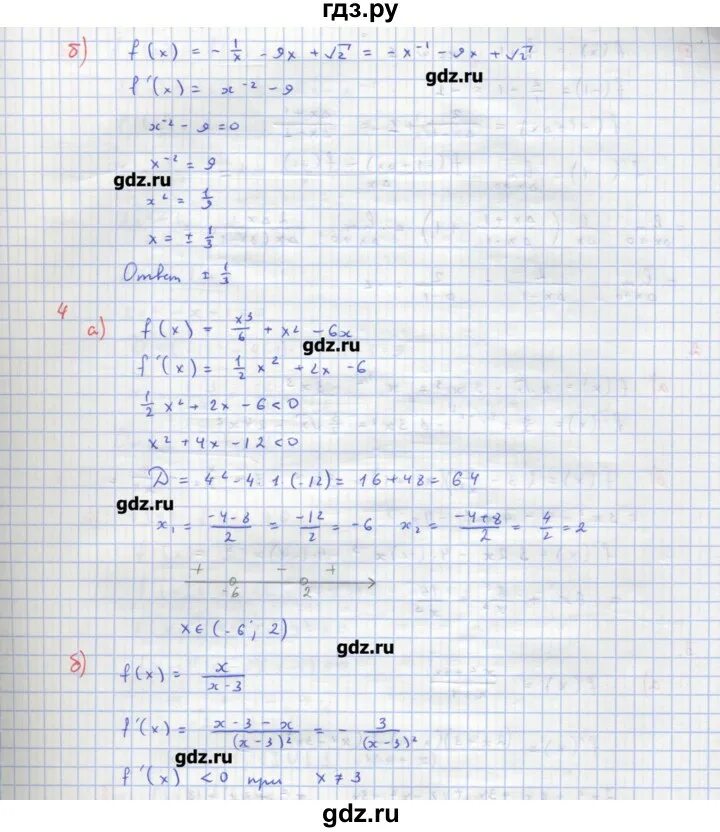 гдз.ру
б) f(x) = - 1/x - 9x + √2 = - x⁻¹ - 9x + √2
gdz.ru
f'(x) = x⁻² - 9
x⁻² - 9 = 0
x⁻² = 9
gdz.ru
x² = 1/9
x = ± 1/3
Ответ ± 1/3
4 а) f(x) = x³/6 + x² - 6x
gdz.ru
f'(x) = 1/2 x² + 2x - 6
1/2 x² + 2x - 6 < 0
x² + 4x - 12 < 0
D = 4² - 4 · 1 (-12) = 16 + 48 = 64
gdz.ru
x₁ = (-4-8)/2 = -12/2 = -6 x₂ = (-4+8)/2 = 4/2 = 2
+ - +
-6 2
x ∈ (-6; 2)
gdz.ru
б) f(x) = x/(x-3)
f'(x) = (x-3-x)/(x-3)² = - 3/(x-3)²
gdz.ru
f'(x) < 0 при x ≠ 3
gdz.ru